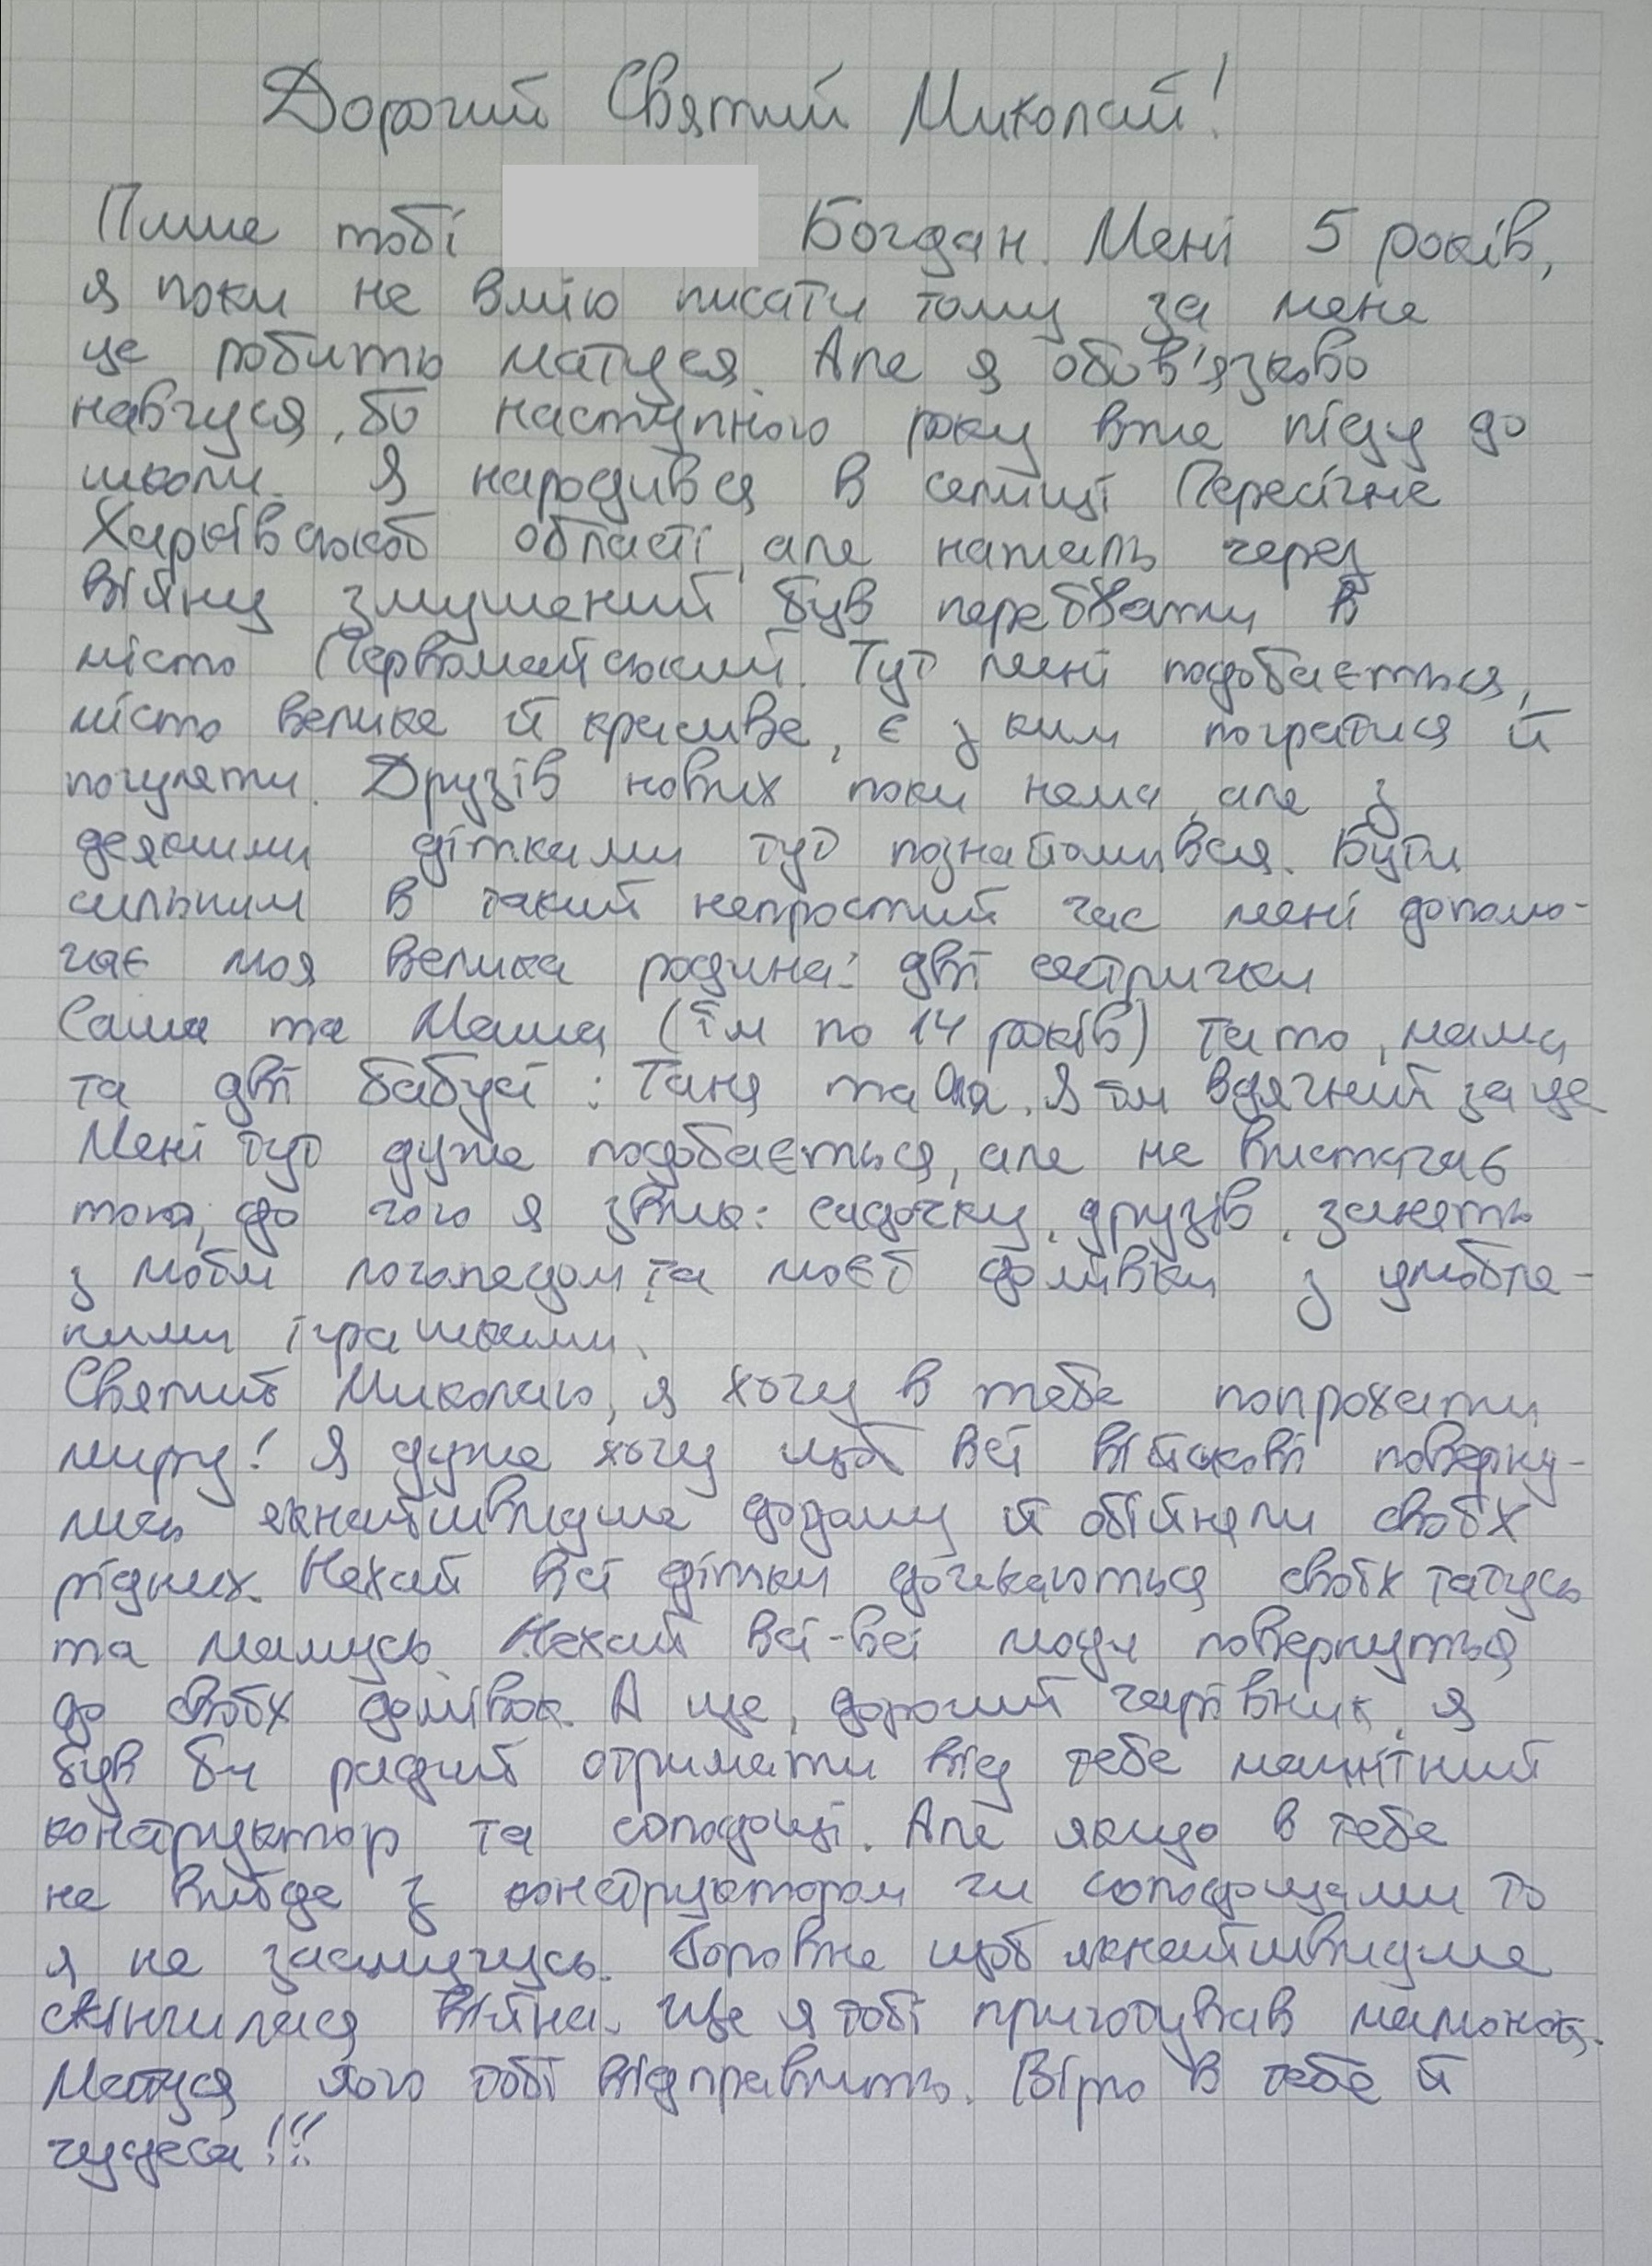 Дорогий Святий Миколай!
Пише тобі Богдан. Мені 5 років,
я поки не вмію писати тому за мене
це робить матуся. Але я обов'язково
навчуся, бо наступного року вже піду до
школи. Я народився в селищі Пересічне
Харківської області, але нажаль через
війну змушений був переїхати в
місто Первомайський. Тут мені подобається,
місто велике й красиве, є з ким погратися й
погуляти. Друзів нових поки нема, але з
деякими дітками тут познайомився. Бути
сильним в такий непростий час мені допома-
гає моя велика родина: дві сестрички
Саша та Маша (їм по 14 років) тато, мама
та дві бабусі: Таня та Оля. Я їм вдячний за це
Мені тут дуже подобається, але не вистачає
того, до чого я звик: садочку, друзів, занять
з моїм логопедом та моєї домівки з улюбле-
ними іграшками.
Святий Миколаю, я хочу в тебе попрохати
миру! Я дуже хочу щоб всі військові поверну-
лись якнайшвидше додому й обійняли своїх
рідних. Нехай всі дітки дочекаються своїх татусь
та мамусь. Нехай всі-всі люди повернуться
до своїх домівок. А ще, дорогий чарівник, я
був би радий отримати від тебе магнітний
конструктор та солодощі. Але якщо в тебе
не вийде з конструктором чи солодощами то
я не засмучусь. Головне щоб якнайшвидше
скінчилася війна. Ще я тобі приготував малюнок.
Матуся його тобі відправить. Вірю в тебе й
чудеса!!!